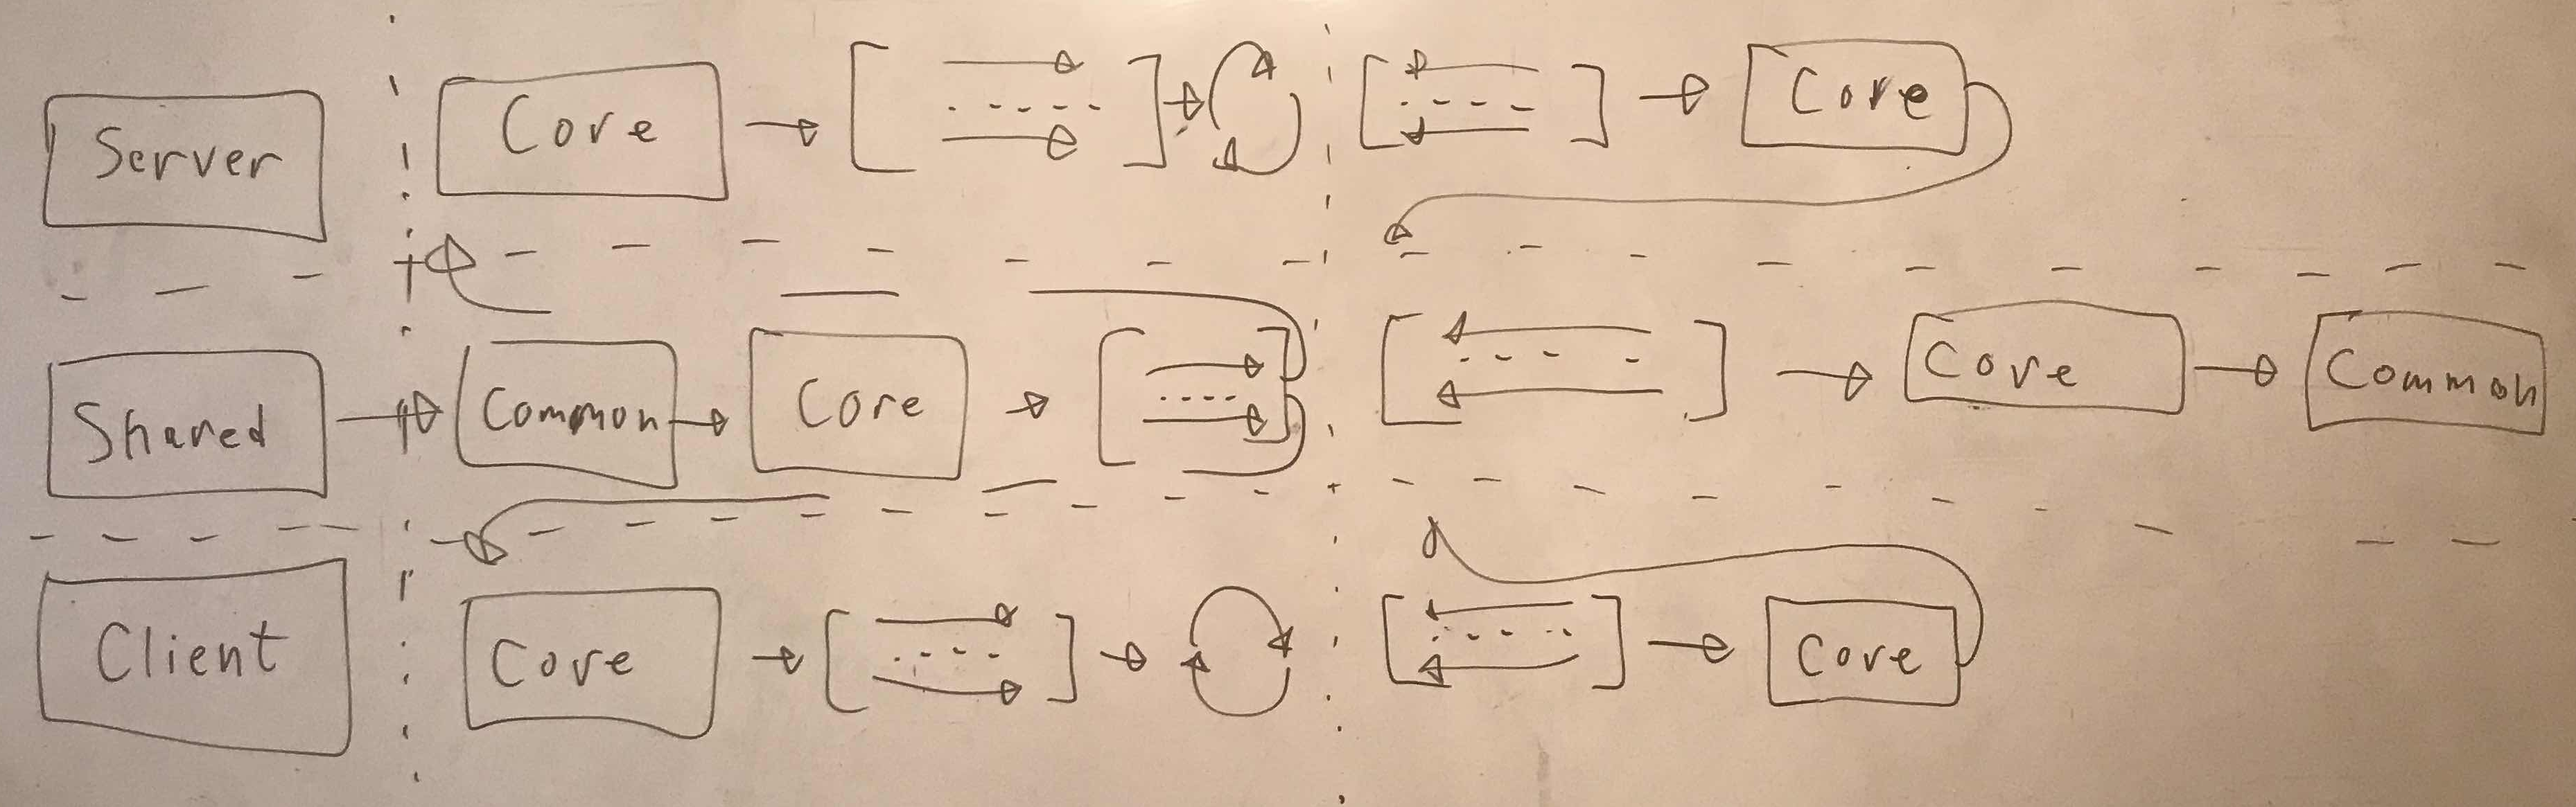 Server
Core
Core
Shared
Common
Core
Core
Common
Client
Core
Core